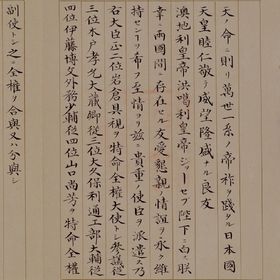 天ノ命ニ則リ萬世一系ノ帝祚ヲ踐タル日本國
天皇睦仁敬テ威望隆盛ナル良友
澳地利皇帝洪噶利皇帝ジョーセフ陛下ニ白ス朕
幸ニ兩國間ニ存在セル友愛懇親ノ情誼ヲ永ク維
持センヿヲ希フノ至情ヨリ茲ニ貴重ノ使臣ヲ派遣シ乃
右大臣正二位岩倉具視ヲ特命全權大使トシ參議從
三位木戸孝允大藏卿從三位大久保利通工部大輔從
四位伊藤博文外務少輔從四位山口尚芳ヲ特命全權
副使トシ之ニ全權ヲ合與又ハ分與シ